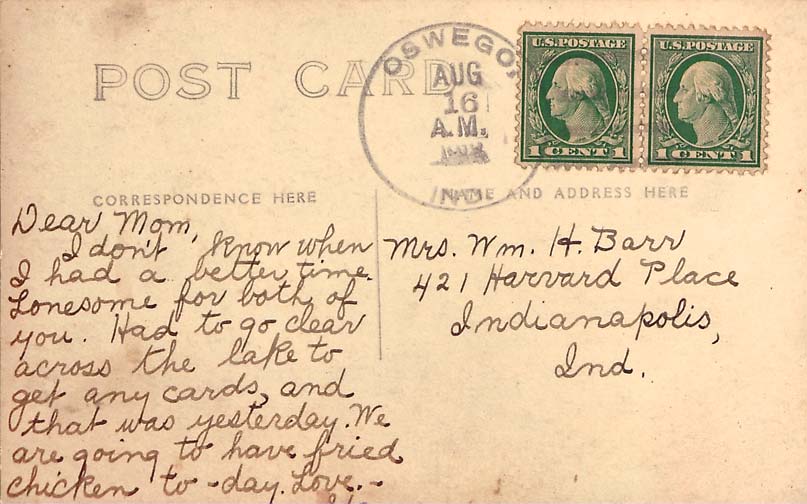 POST CARD
OSWEGO,
AUG
16
A.M.
IND
U.S.POSTAGE
1 CENT 1
U.S.POSTAGE
1 CENT 1
CORRESPONDENCE HERE
NAME AND ADDRESS HERE
Dear Mom,
I don't know when
I had a better time.
Lonesome for both of
you. Had to go clear
across the lake to
get any cards, and
that was yesterday. We
are going to have fried
chicken to-day. Love.-
Mrs. Wm. H. Barr
421 Harvard Place
Indianapolis,
Ind.